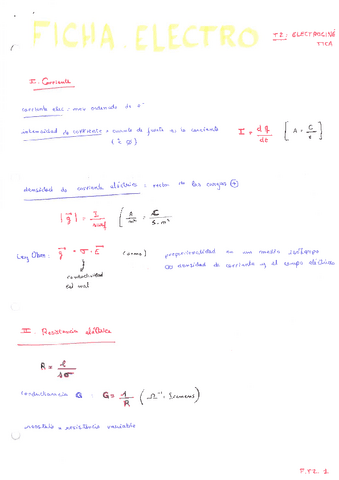 FICHA ELECTRO
T2: ELECTROCINÉ
TICA
I. Corriente
corriente elec: mov ordenado de e⁻
intensidad de corriente = cuanto de fuerte es la corriente
I = dq/dt [A = C/s]
densidad de corriente eléctrica: vector de las cargas ⊕
|j⃗| = I/surf (A/m² = C/s·m²)
Ley Ohm: j⃗ = σ·E⃗
proporcionalidad en un medio isótropo
densidad de corriente y el campo eléctrico
conductividad
del mat
II. Resistencia eléctrica
R = l/sσ
conductancia G : G = 1/R (Ω⁻¹: Siemens)
reostato = resistencia variable
P.T2. 1